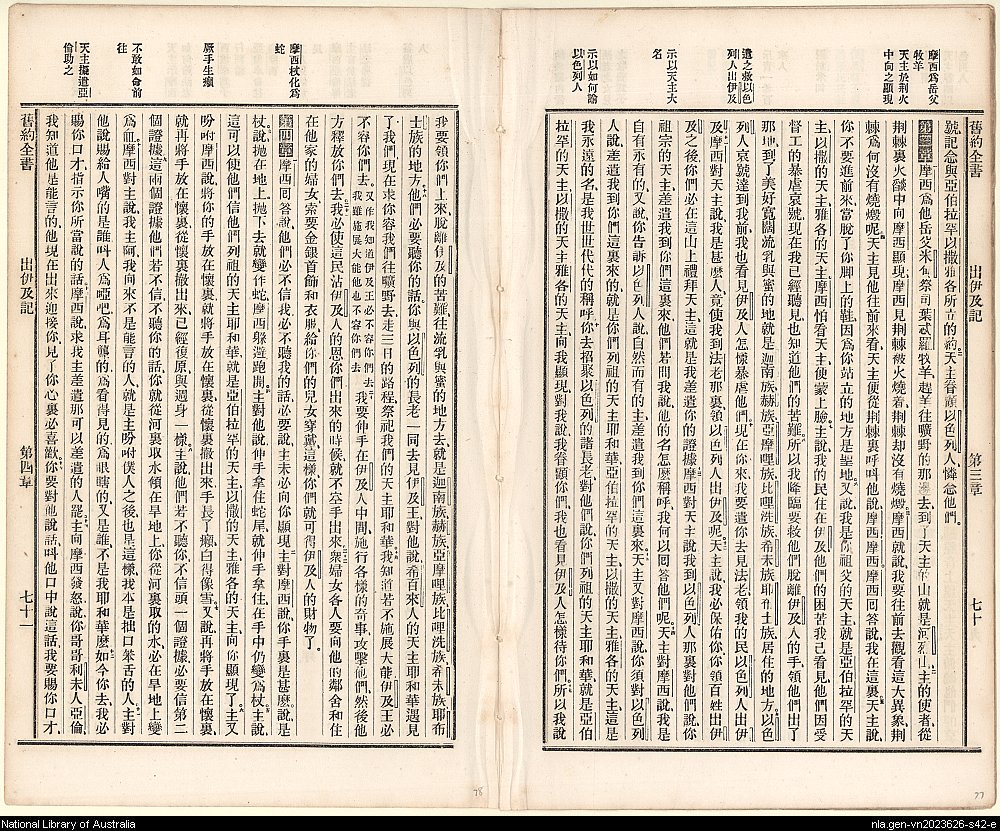 摩西爲岳父牧羊
天主於荆火中向之顯現
遣之救以色列人出伊及
示以天主大名
示以如何諭以色列人
舊約全書
出伊及記
第三章
七十
號記念與亞伯拉罕以撒雅各所立的約天主眷顧以色列人憐念他們
第三章摩西爲他岳父米甸祭司葉忒羅牧羊趕羊往曠野的那邊去到了天主的山就是河烈山主的使者從
荆棘裏火燄中向摩西顯現摩西見荆棘被火燒着荆棘却沒有燒燬摩西就說我要往前去觀看這大異象荆
棘爲何沒有燒燬呢天主見他往前來看天主便從荆棘裏呼叫他說摩西摩西回答說我在這裏天主說
你不要進前來當脫了你脚上的鞋因爲你站立的地方是聖地又說我是你祖父的天主就是亞伯拉罕的天
主以撒的天主雅各的天主摩西怕看天主便蒙上臉主說我的民住在伊及他們的困苦我已看見他們因受
督工的暴虐哀號現在我已經聽見也知道他們的苦難所以我降臨要救他們脫離伊及人的手領他們出了
那地到了美好寬闊流乳與蜜的地就是迦南族赫族亞摩哩族比哩洗族希未族耶布士族居住的地方以色
列人哀號達到我前我也看見伊及人怎樣暴虐他們現在你來我要遣你去見法老領我的民以色列人出伊
及摩西對天主說我是甚麼人竟使我到法老那裏領以色列人出伊及呢天主說我必保佑你你領百姓出伊
及之後你們必在這山上禮拜天主這就是我差遣你的證據摩西對天主說我到以色列人那裏對他們說你
祖宗的天主差遣我到你們這裏來他們若問我說他的名怎麼稱呼我可以回答他們呢天主對摩西說我是
自有永有的又說你告訴以色列人說自然而有的主差遣我到你們這裏來天主又對摩西說你須對以色列
人說差遣我到你們這裏來的就是你們列祖的天主耶和華亞伯拉罕的天主以撒的天主雅各的天主這是
我永遠的名是我世世代代的稱呼你去招聚以色列的諸長老對他們說你們列祖的天主耶和華就是亞伯
拉罕的天主以撒的天主雅各的天主向我顯現對我說我眷顧你們我也看見伊及人怎樣待你們所以我說
摩西杖化爲蛇
厥手生癩
不敢如命前往
天主擬遣亞倫助之
我要領你們上來脫離伊及的苦難往流乳與蜜的地方去就是迦南族赫族亞摩哩族比哩洗族希未族耶布
士族的地方他們必要聽你的話你與以色列的長老一同去見伊及王對他說希百來人的天主耶和華遇見
了我們現在求你容我們往曠野去走三日的路程祭祀我們的天主耶和華我知道若不施展大能伊及王必
不容你們去又作我知道伊及王必不容你們去我雖施展大能他也不容你們去我要伸手在伊及人中間施行各樣的奇事攻擊他們然後他
方釋放你們去我必使這民沾伊及人的恩你們出來的時候就不空手出來衆婦女各人要向他的鄰舍和住
在他家的婦女索要金銀首飾和衣服給你們的兒女穿戴這樣你們就可得伊及人的財物了
第四章摩西回答說他們必不信我必不聽我的話必要說主未必向你顯現主對摩西說你手裏是甚麼說是
杖說抛在地上抛下去就變作蛇摩西躱避跑開主對他說伸手拿住蛇尾就伸手拿住在手中仍變爲杖主說
這可以使他們信他們列祖的天主耶和華就是亞伯拉罕的天主以撒的天主雅各的天主向你顯現了主又
吩咐摩西說將你的手放在懷裏就將手放在懷裏從懷裏撤出來手長了癩白得像雪又說再將手放在懷裏
就再將手放在懷裏從懷裏撤出來已經復原與週身一樣主說他們若不聽你不信頭一個證據必要信第二
個證據這兩個證據他們若不信不聽你的話你就從河裏取水傾在旱地上你從河裏取的水必在旱地上變
爲血摩西對主說我主阿我向來不是能言的人就是主吩咐僕人之後也是這樣我本是拙口笨舌的人主對
他說賜給人嘴的是誰叫人爲啞吧爲耳聾的爲看得見的爲眼瞎的又是誰不是我耶和華麼如今你去我必
賜你口才指示你所當說的話摩西說求我主差遣那可以差遣的人罷主向摩西發怒說你哥哥利未人亞倫
我知道他是能言的他現在出來迎接你見了你心裏必喜歡你要對他說話叫他口中說這話我要賜你口才
舊約全書
出伊及記
第四章
七十一
78
77
National Library of Australia
nla.gen-vn2023626-s42-e